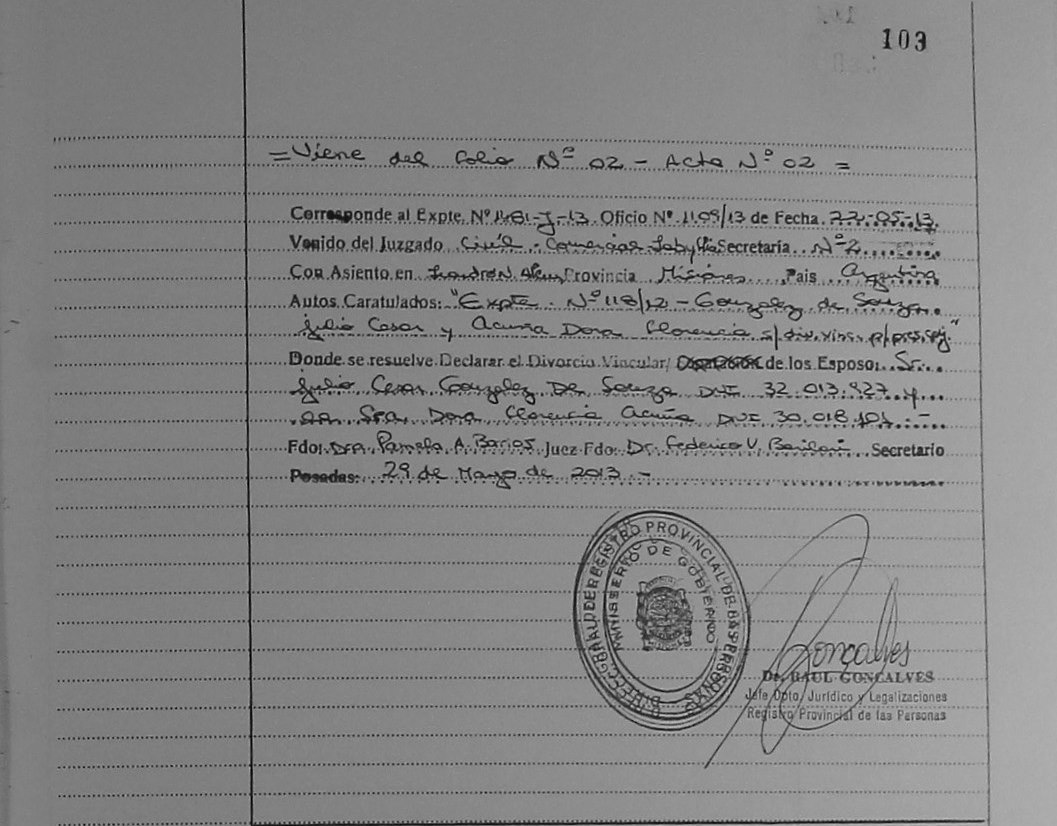 103
= Viene del Folio Nº 02 - Acta Nº 02 =
Corresponde al Expte. Nº 1481-J-13. Oficio Nº 1109/13 de Fecha 22-05-13.
Venido del Juzgado Civil. Comercial Lab y Flia Secretaría Nº 2
Con Asiento en Leandro N. Alem Provincia Misiones País Argentina
Autos Caratulados: "Expte. Nº 118/12 - Gonzalez de Souza
Julio Cesar y Acuña Dora Florencia s/ div. vinc. p/ pres. conj."
Donde se resuelve Declarar el Divorcio Vincular/ de los Esposos Sr.
Julio Cesar Gonzalez De Souza DNI 32.013.927 y
la Sra. Dora Florencia Acuña DNI 30.018.101.-
Fdo: Dra. Pamela A. Barrios Juez Fdo: Dr. Federico V. Secretario
Posadas: 29 de Mayo de 2013.-
DIRECC. GRAL. DE REGISTRO PROVINCIAL DE LAS PERSONAS
MINISTERIO DE GOBIERNO
Gonçalves
Dr. RAUL GONCALVES
Jefe Dpto. Jurídico y Legalizaciones
Registro Provincial de las Personas